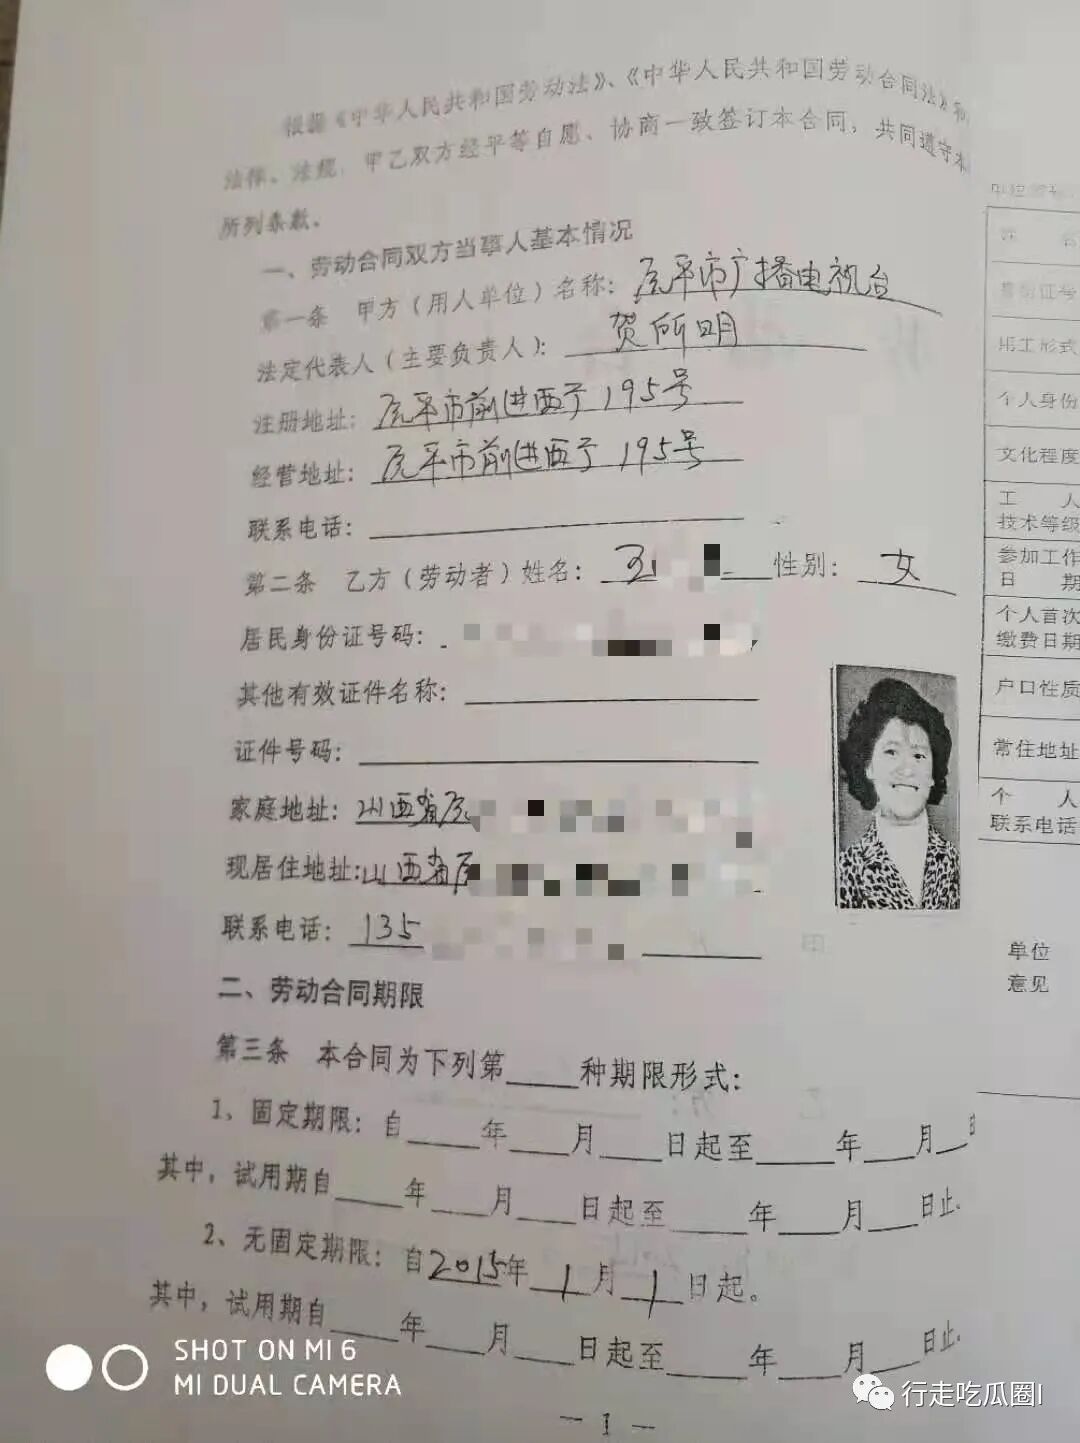 根据《中华人民共和国劳动法》、《中华人民共和国劳动合同法》和
法律、法规，甲乙双方经平等自愿、协商一致签订本合同，共同遵守本
所列条款。
一、劳动合同双方当事人基本情况
第一条 甲方（用人单位）名称：原平市广播电视台
法定代表人（主要负责人）：贺所明
注册地址：原平市前进西于195号
经营地址：原平市前进西于195号
联系电话：
第二条 乙方（劳动者）姓名： 性别：女
居民身份证号码：
其他有效证件名称：
证件号码：
家庭地址：山西省原
现居住地址：山西省原
联系电话：135
二、劳动合同期限
第三条 本合同为下列第____种期限形式：
1、固定期限：自____年____月____日起至____年____月____日
其中，试用期自____年____月____日起至____年____月____日止.
2、无固定期限：自2015年1月1日起。
其中，试用期自____年____月____日起至____年____月____日止.
— 1 —
姓 名
身份证号
用工形式
个人身份
文化程度
工 人
技术等级
参加工作
日 期
个人首次
缴费日期
户口性质
常住地址
个 人
联系电话
单位
意见
SHOT ON MI 6
MI DUAL CAMERA
行走吃瓜圈I